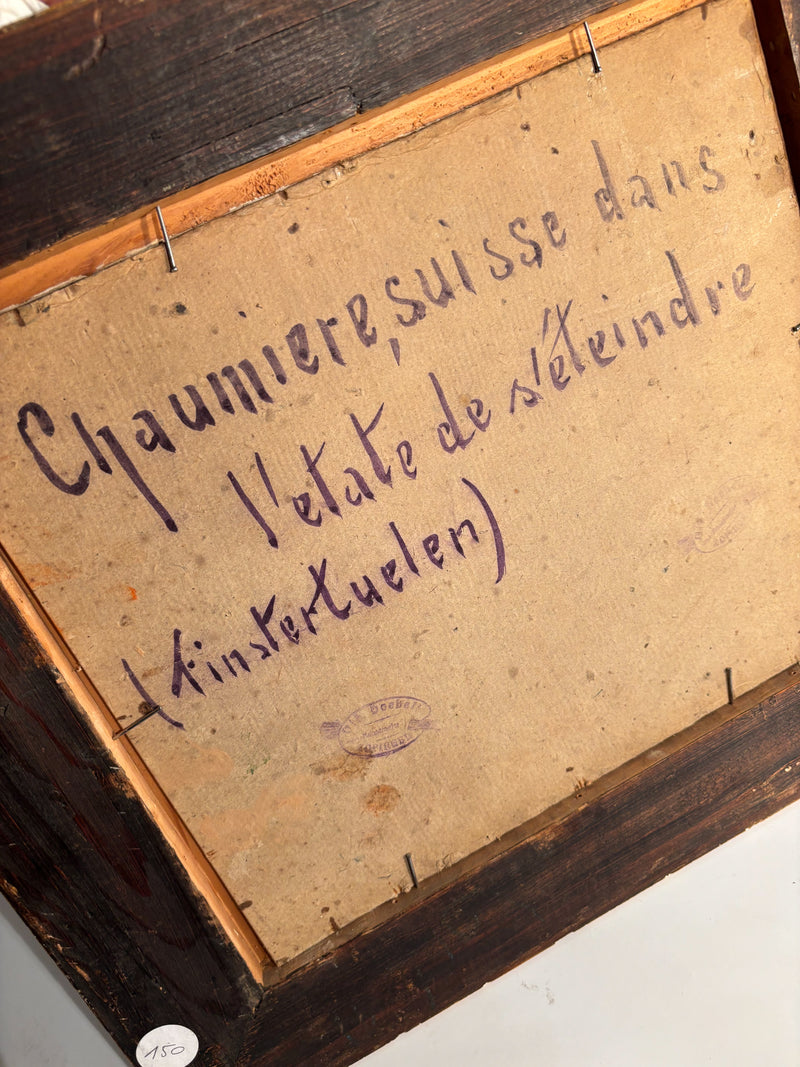 Chaumiere, suisse dans
l'etate de s'éteindre
(Finstertuelen)
150